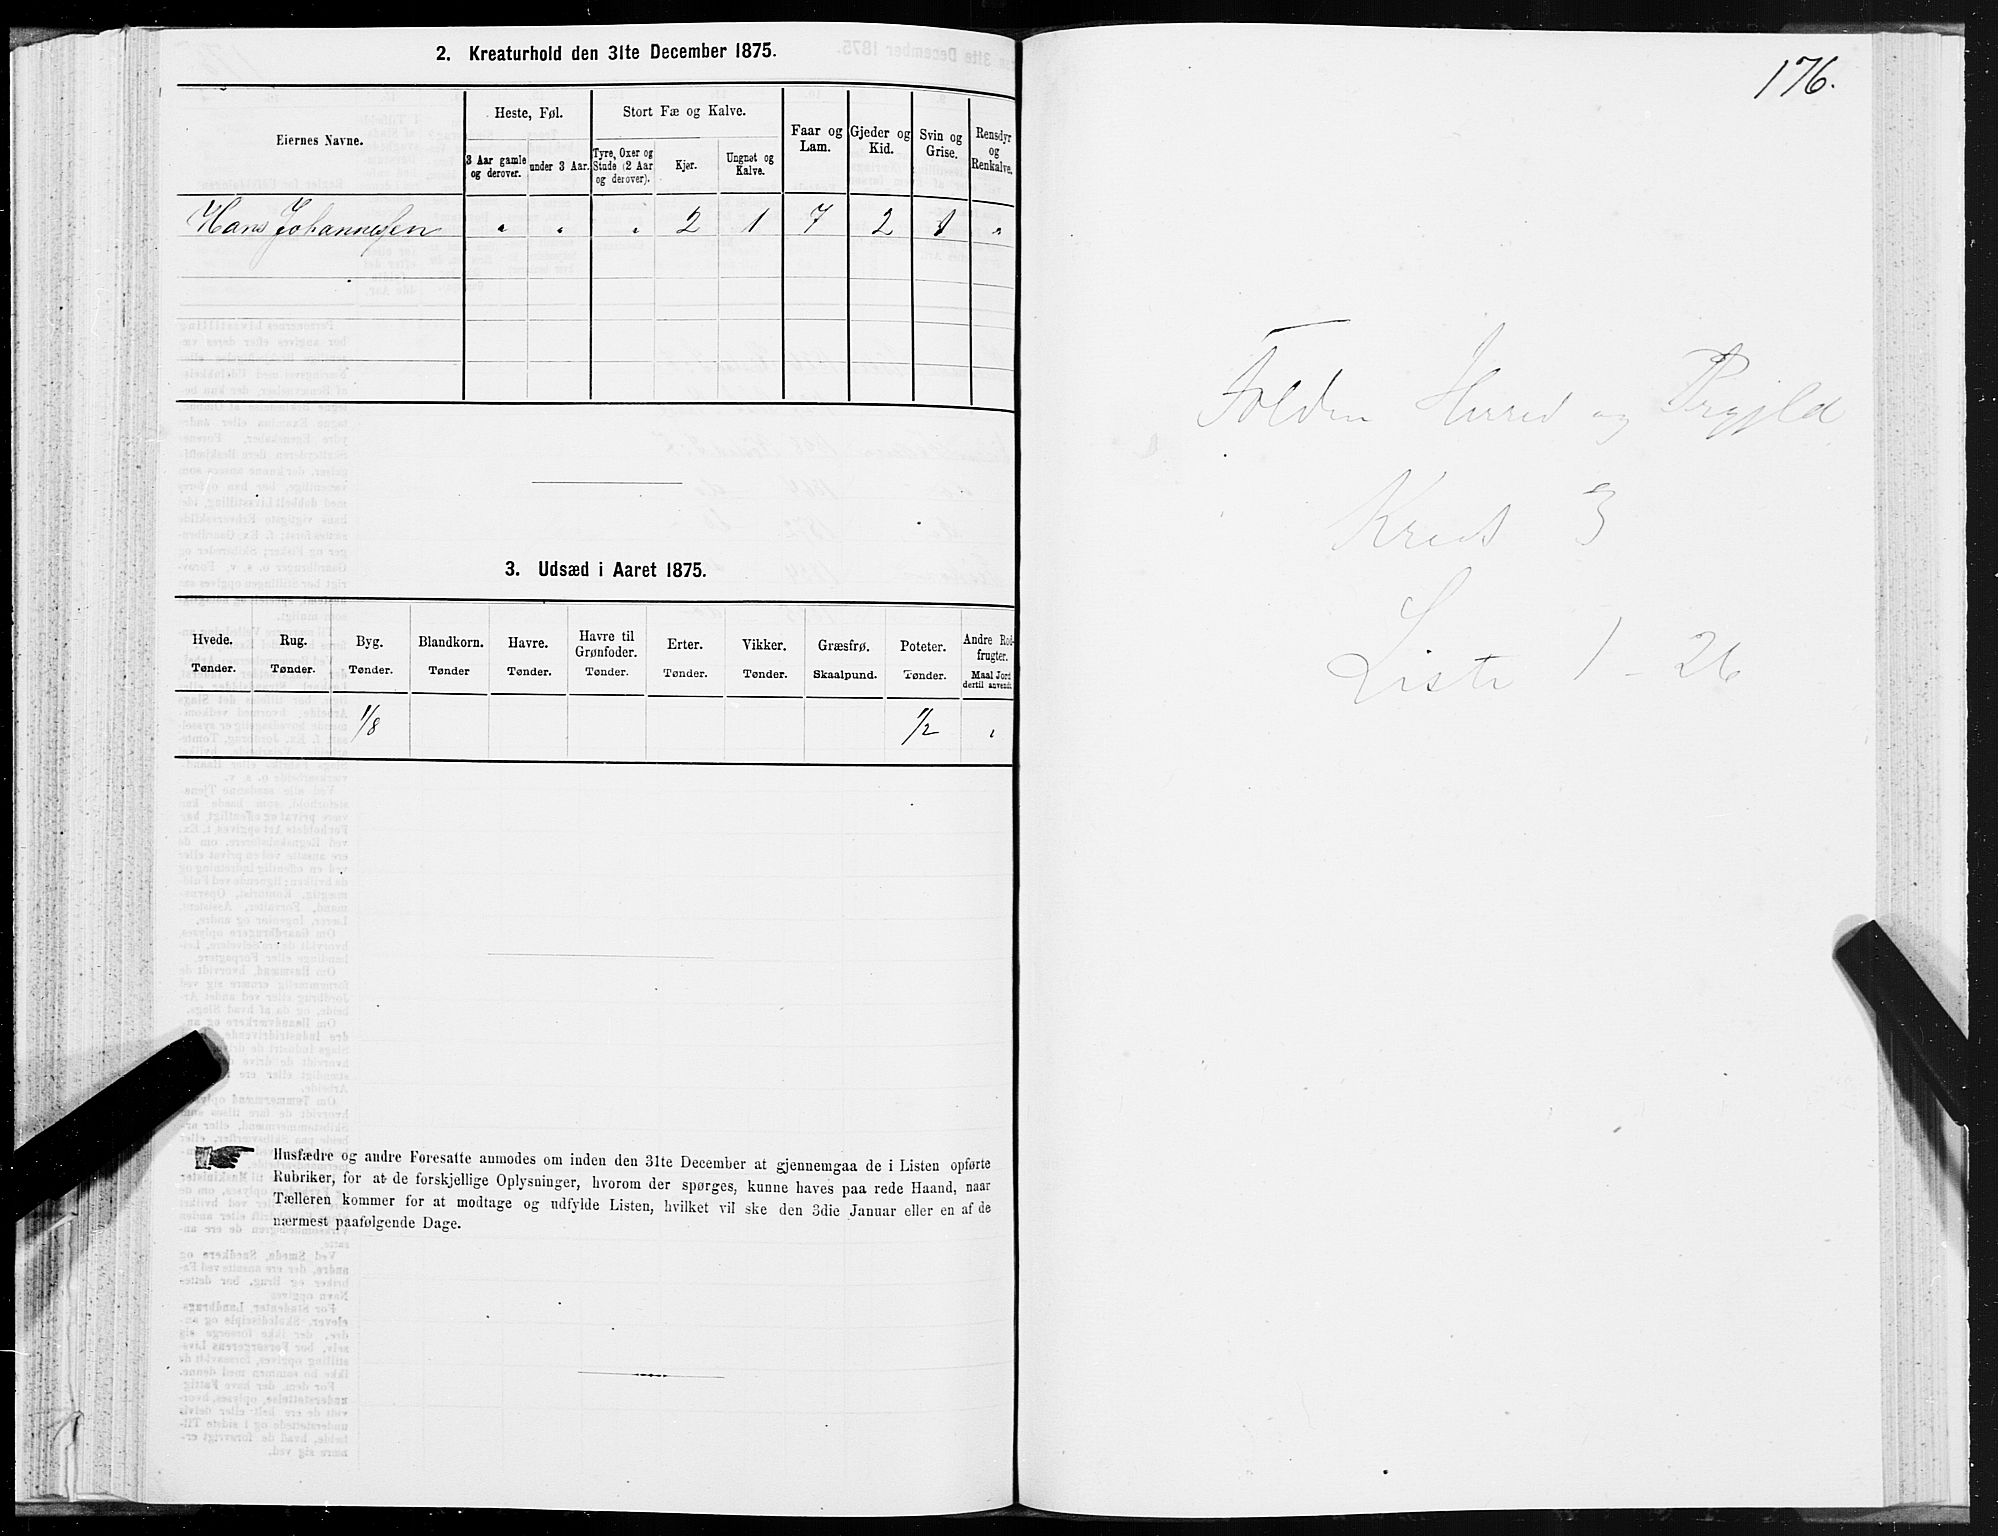 2. Kreaturhold den 31te December 1875.
Eiernes Navne.
Heste, Føl.
Stort Fæ og Kalve.
Faar og Lam.
Gjeder og Kid.
Svin og Grise.
Rensdyr og Renkalve.
3 Aar gamle og derover.
under 3 Aar.
Tyre, Oxer og Stude (2 Aar og derover).
Kjør.
Ungnøt og Kalve.
Hans Johannesen " " " 2 1 7 2 1 "
3. Udsæd i Aaret 1875.
Hvede. Rug. Byg. Blandkorn. Havre. Havre til Grønfoder. Erter. Vikker. Græsfrø. Poteter. Andre Rodfrugter.
Tønder. Tønder. Tønder. Tønder Tønder. Tønder. Tønder. Tønder. Skaalpund. Tønder. Maal Jord dertil anvendt.
1/8 1/2 "
Husfædre og andre Foresatte anmodes om inden den 31te December at gjennemgaa de i Listen opførte
Rubriker, for at de forskjellige Oplysninger, hvorom der spørges, kunne haves paa rede Haand, naar
Tælleren kommer for at modtage og udfylde Listen, hvilket vil ske den 3die Januar eller en af de
nærmest paafølgende Dage.
176.
Folden Herred og Prgjld
Kreds 3
Liste 1 - 26